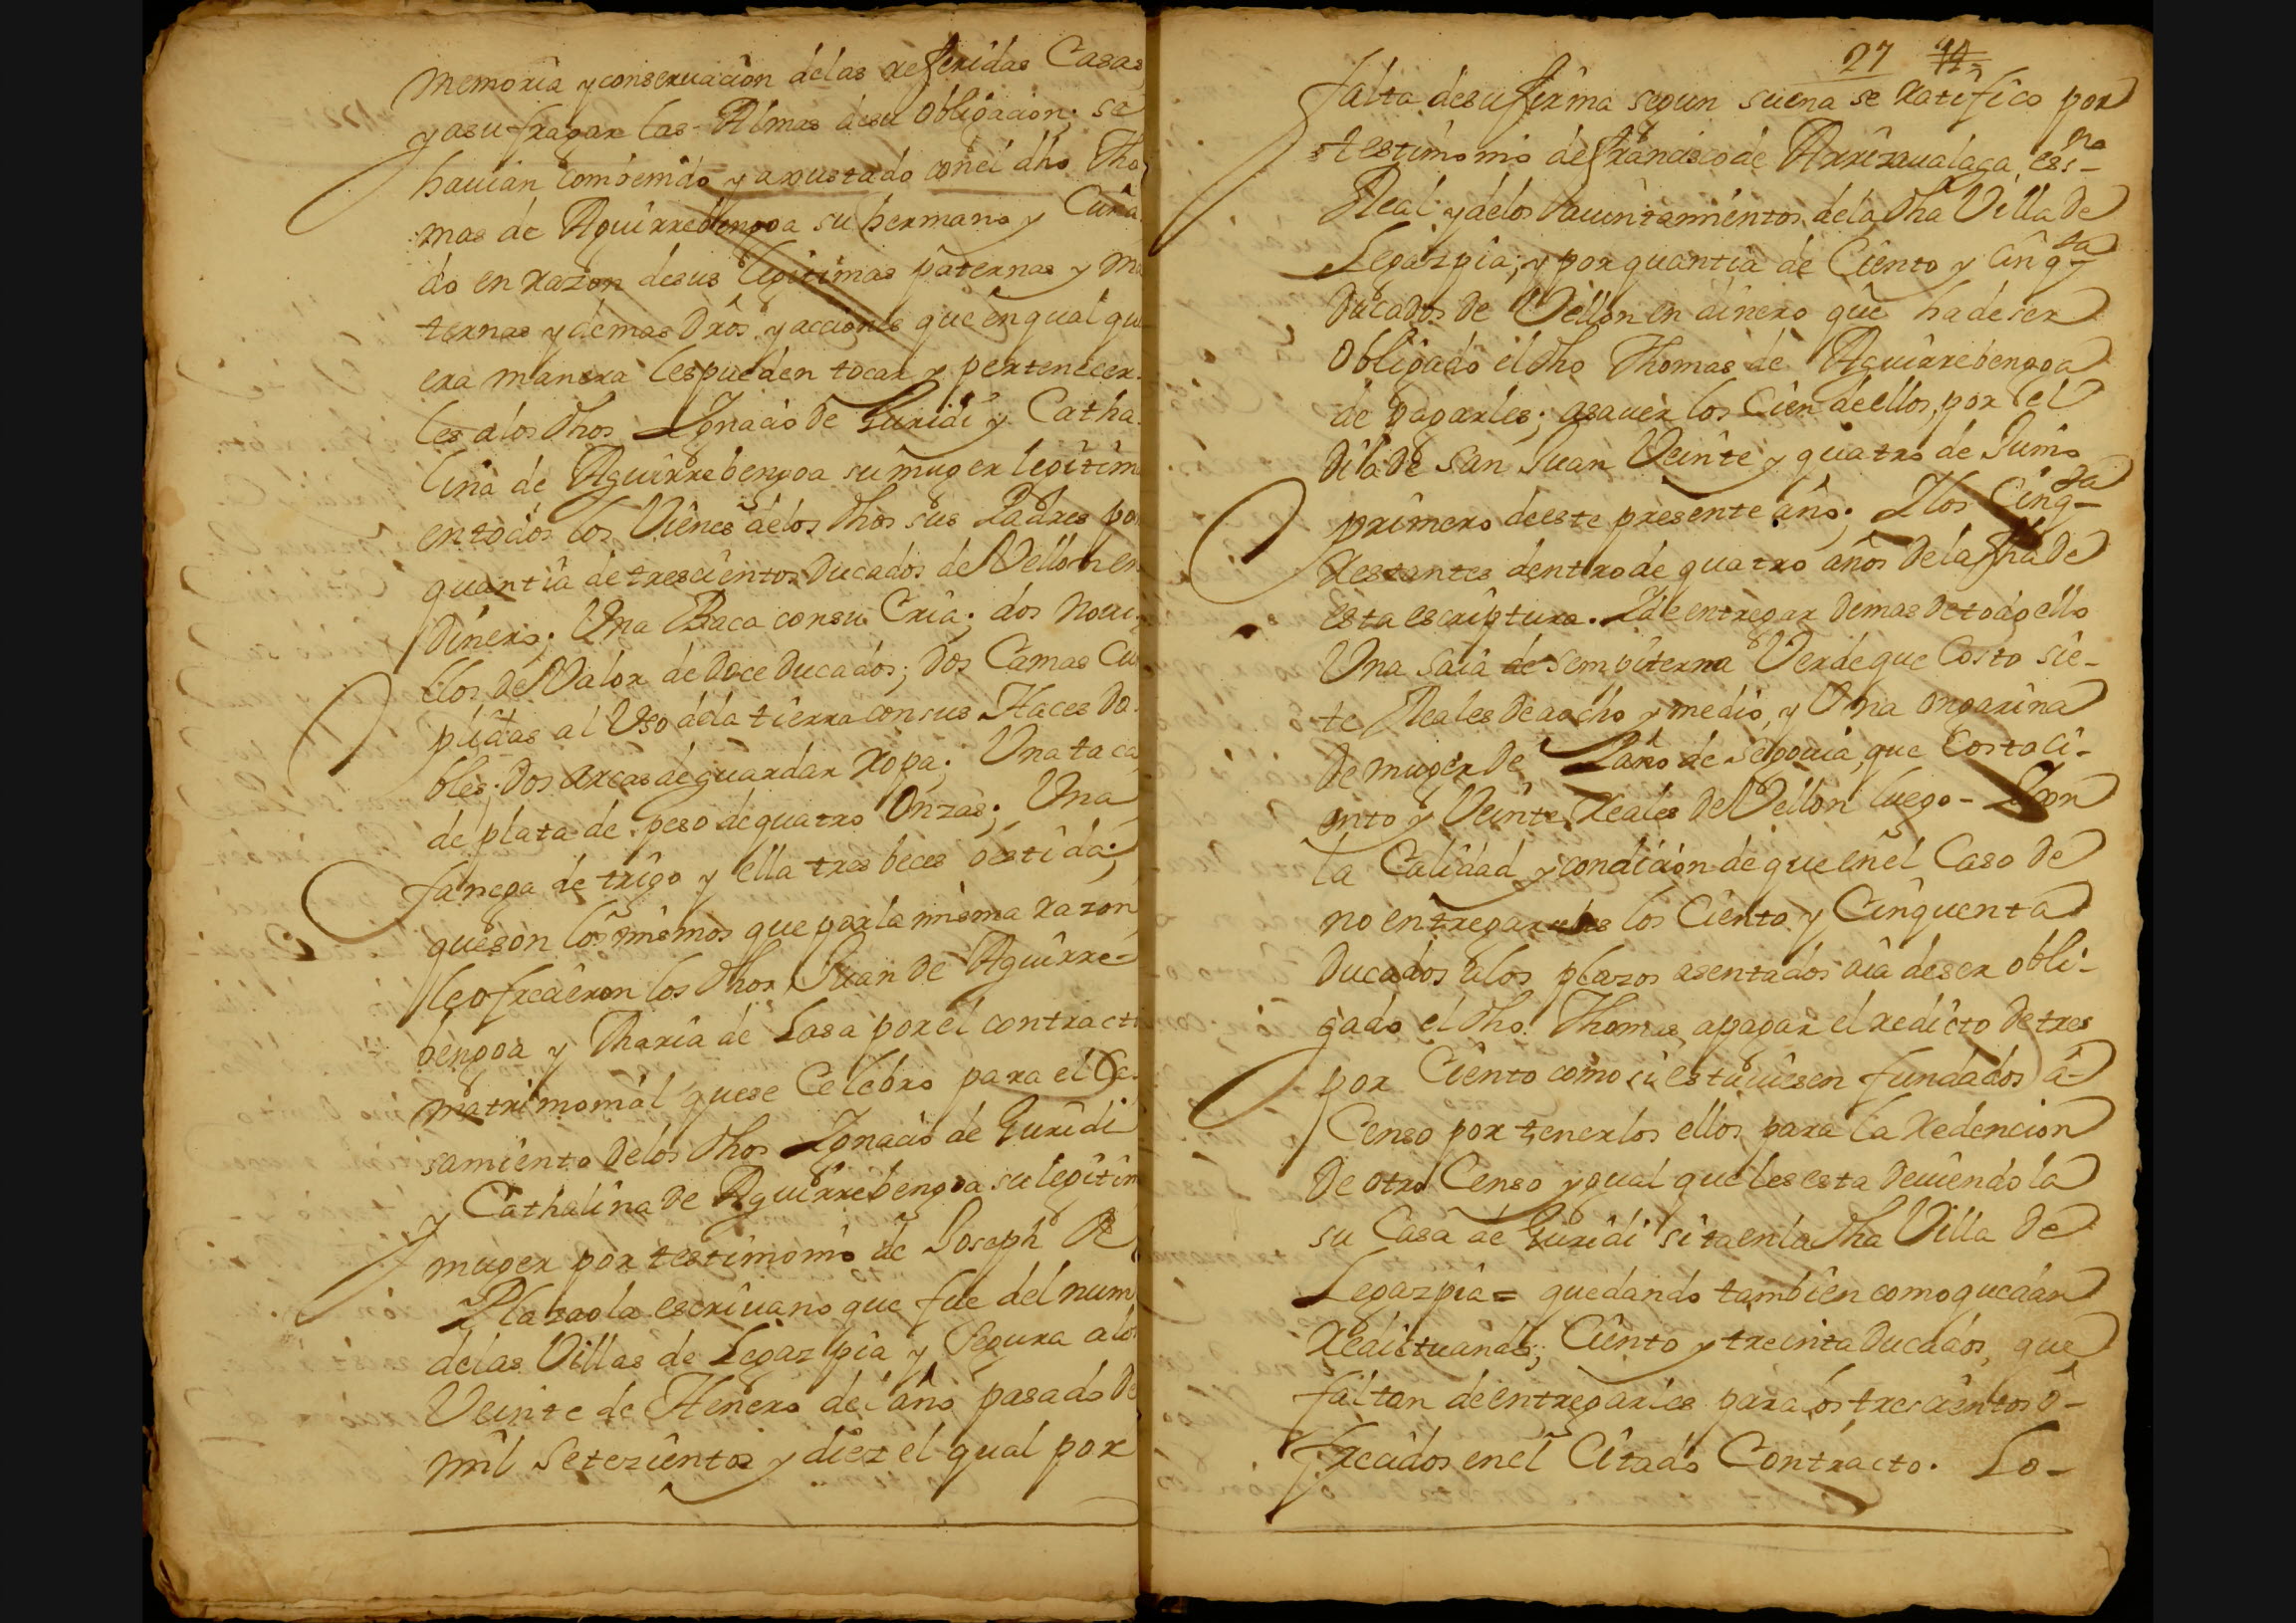 memoria y conseruacion delas referidas Casas
y asufragar las Almas desu obligacion; se
hauian combenido y axustado conel dho Tho
mas de Aguirrebengoa su hermano y Cuña
do en razon desus legitimas paternas y ma
ternas y demas dros y acciones que en qual qui
era manera les pueden tocar y pertenecer
les alos dhos Ignacio de Guridi y Catha
lina de Aguirrebengoa su muger legitim
entodos los Vienes delos dhos sus Padres por
quantia de trescientos Ducados de Vellon en
Dinero; Una Baca consu Cria; dos Noui
llos de Valor de Doce Ducados; Dos Camas Cu
plidas al Uso dela tierra consus Haces Do
bles; Dos arcas de guardar ropa; Una taca
de plata de peso de quatro Onzas; Una
fanega de trigo y ella tres beces bestida;
que son los mismos que por la misma razon
le ofrecieron los dhos Juan de Aguirre-
bengoa y Maria de Lasa por el contracto
matrimonial que se Celebro para el Ca
samiento Delos dhos Ignacio de Guridi
y Cathalina de Aguirrebengoa su legitim
muger por testimonio de Joseph de
Plazaola escriuano que fue del num
delas Villas de Legazpia y Segura alos
Veinte de Henero del año pasado De
mil setezientos y diez el qual por
27 14
falta desu firma segun suena se ratifico por
testimonio de francisco de Arrizaualaga, essno
Real y delos Aiuntamientos dela dha Villa de
Legazpia; y por quantia de Ciento y cinqta
Ducados de Vellon en dinero que ha de ser
obligado el dho Thomas de Aguirrebengoa
de pagarles; asauer los Cien de ellos, por el
Dia de San Juan Veinte y quatro de Junio
primero deeste presente año; I los Cinqta
restantes dentro de quatro años Dela fha De
esta escriptura. I de entregar Demas de todo ello
Una saia de sempiterna Verde que Costo sie-
te Reales De a ocho y medio, y Una ongarina
De muger De Paño de segouia, que Costo ci-
ento y Veinte Reales De Vellon luego - Icon
la Calidad y condicion de que enel Caso de
no entregarles los Ciento y Cinquenta
Ducados alos plazos asentados aia de ser obli-
gado el dho Thomas, apagar el redicto De tres
por Ciento como si estuuiesen fundados á-
Censo por tenerlos ellos para la redencion
De otro Censo ygual que les esta Deuiendo la
su Casa de Guridi sita enla dha Villa De
Legazpia = quedando tambien como quedan
redictuando; Ciento y treinta Ducados, que
faltan de entregarles para los trescientos o-
frecidos enel Citado Contracto. Lo-